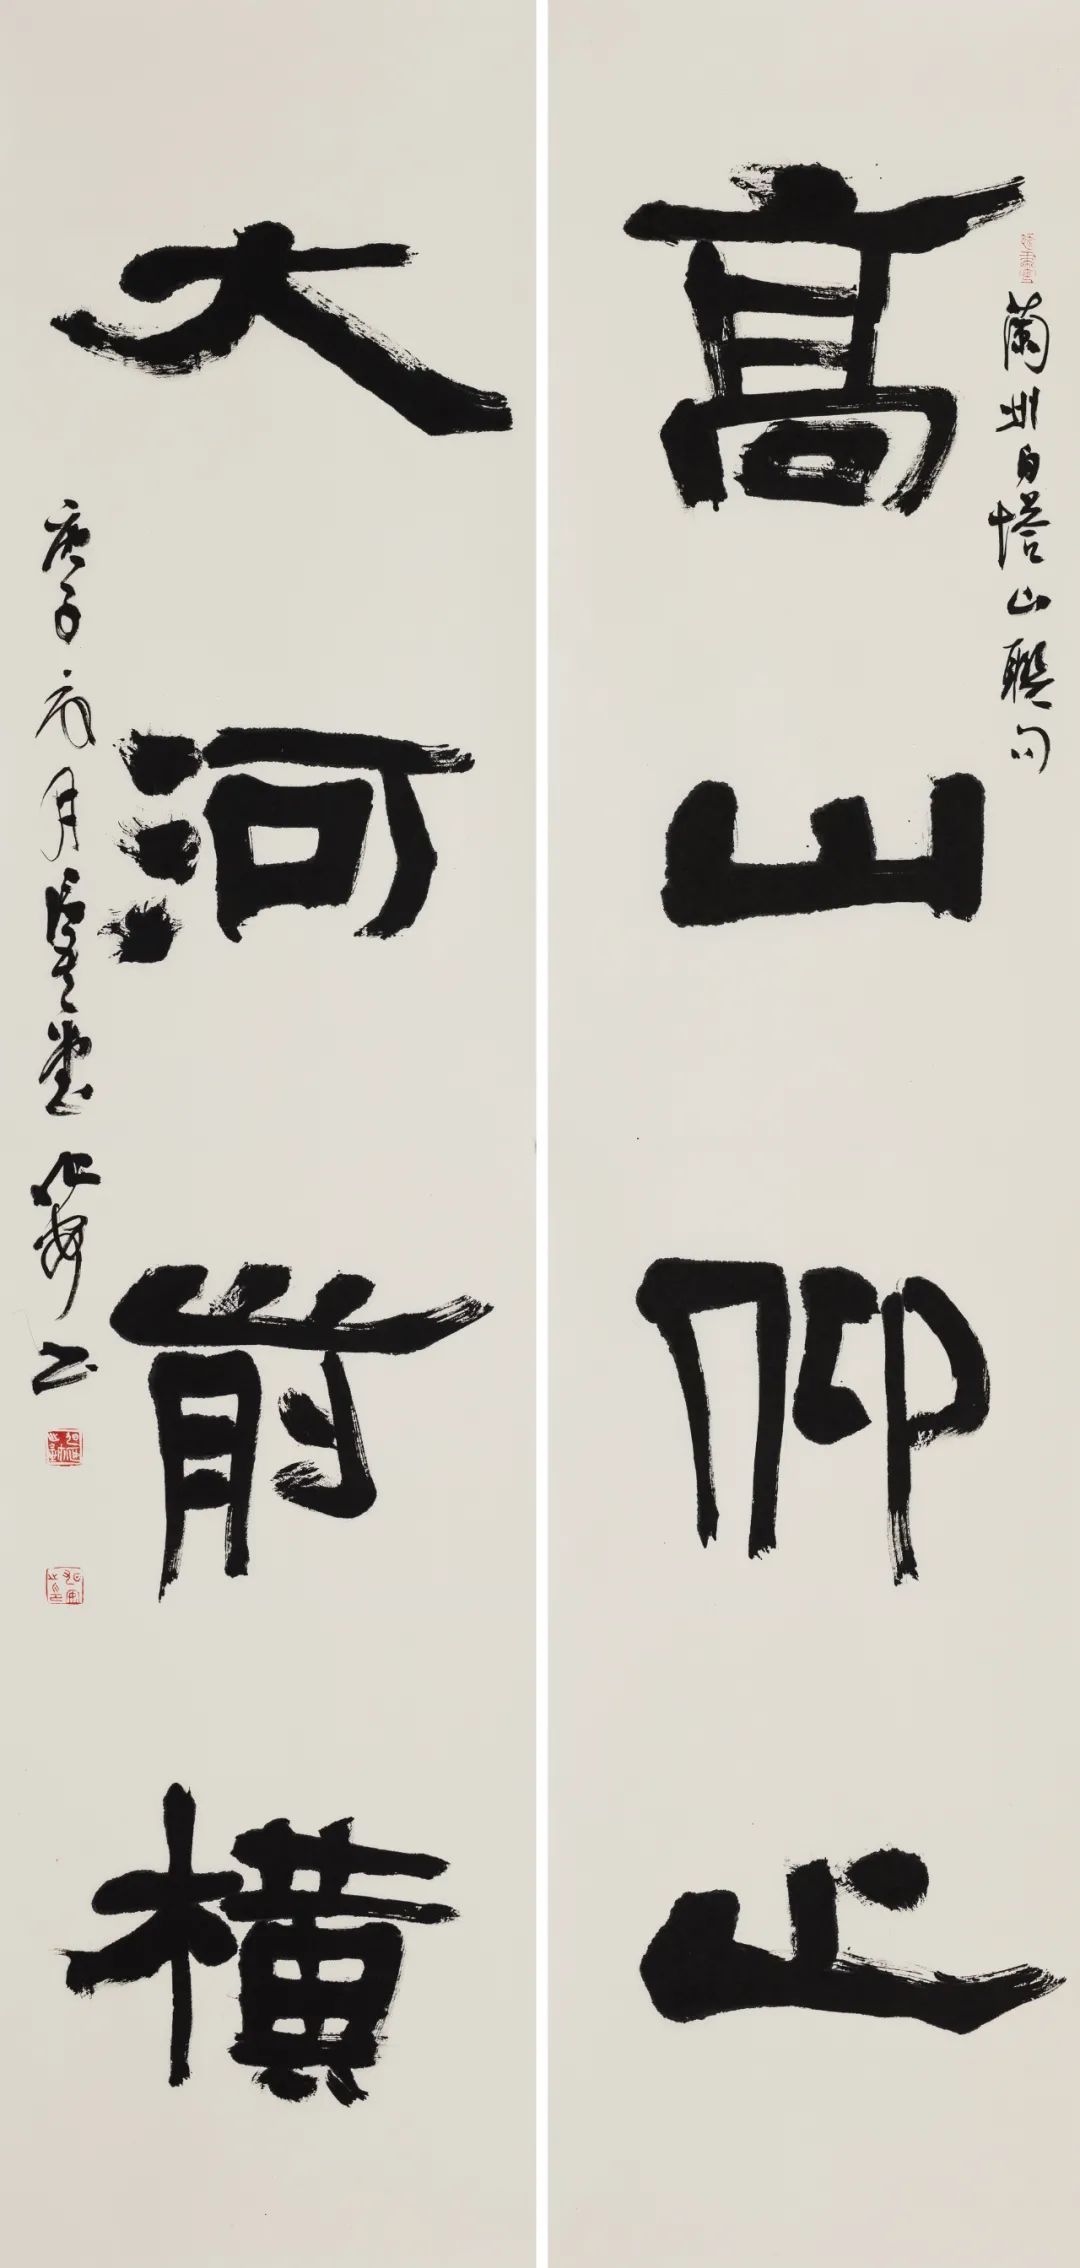 高山仰止
蘭州白塔山聯句
大河前橫
庚子六月
書